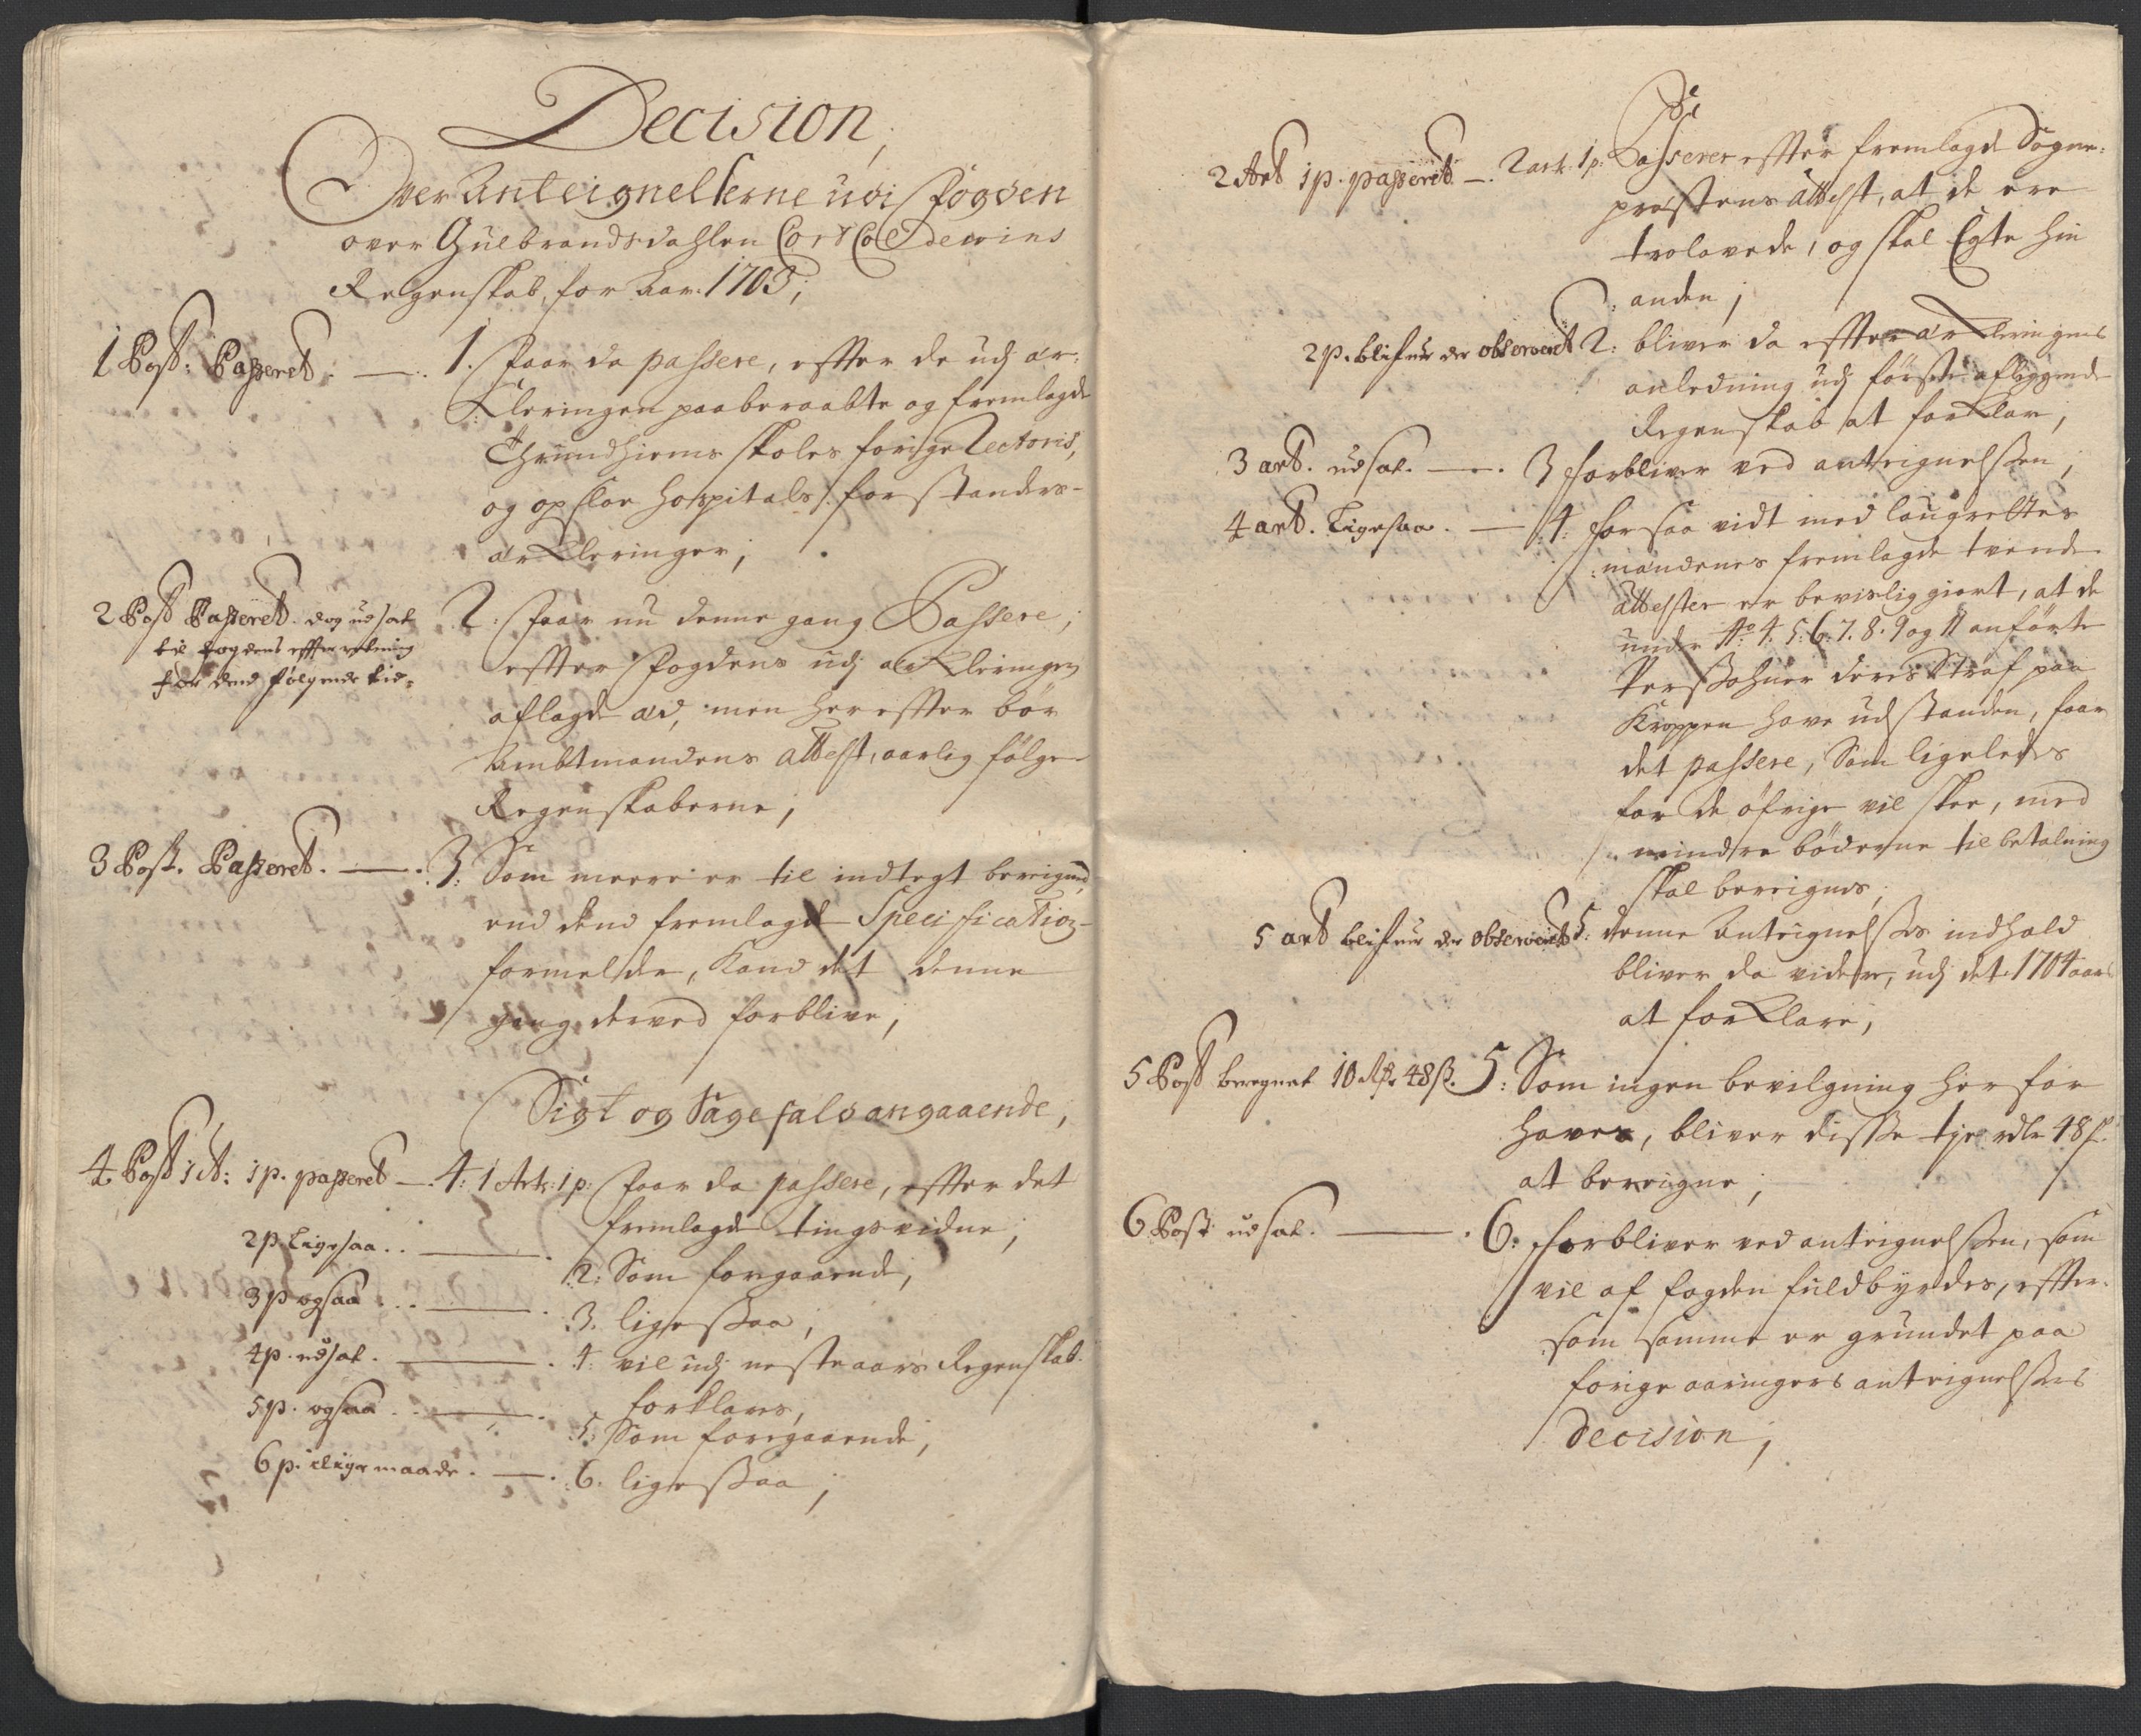 Decision,
Over Anteignelserne udi fogden
over Gulbrandsdahlen Cort Coldewins
Regenskab, for Aar: 1703;
1 Post: Passeret. —. 1. Faar da passere, effter de udj er-
kleringen paaberaabte og fremlagde
Thrundhiems skoles forige Lectoris,
og opsloe Hospitals forstanders-
erkleringer;
2 Post Passeret. dog udsat 2: Faar nu denne gang Passere,
til fogdens effterretning effter fogdens udj erkleringen
for dend følgende tid. aflagde æd, men her effter bør
Ambtmandens attest, aarlig følge
Regenskaberne;
3 Post. Passeret. —. 3: Som meere er til indtegt bereignd,
end dend fremlagde Specification-
formelder, Kand det denne
gang derved forblive,
Sigt og Sagefals angaaende,
4 Post 1 A: 1 p. passeret —. 4: 1 Art: 1 p: Faar da passere, effter det
fremlagde tingsvidne,
2 p. Ligesaa. . — 2: Som forgaaende,
3 p ogsaa . . — . 3. ligesaa,
4 p. udsat. — . 4: vil udj neste aars Regenskab
forklares,
5 p. ogsaa . — . 5: Som foregaaende,
6 p. i lige maade. —. 6. ligesaa;
2 Art 1 p. passeret —. 2 art. 1 p: Passerer effter fremlagde Sogne-
prestens attest, at de ere
trolovede, og skal Egte hin
anden;
2 p. blifuer der observeret 2: bliver da effter erkleringens
anledning udj første afliggende
Regenskab at forklare,
3 art. udsat. —. 3 forbliver ved anteignelsen,
4 art. Ligesaa. — 4: for saa vidt med laugrettes
mændenes fremlagde tvende
attester er bevislig giort, at de
under No. 4. 5. 6. 7. 8. 9 og 11 anførte
Persohner deris Straf paa
Kroppen have udstanden, faar
det passere, Som ligeledes
for de øfrige vil skee, med
mindre bøderne til betalning
skal bereignes,
5 art blifuer der observeret 5: denne Anteignelses indhold
bliver da videre, udj det 1704 aars
at forklare,
5 Post beregnet 10 Rdr 48 ß. 5: Som ingen bevilgning her for
haves, bliver disse tje rdlr 48 ß.
at bereigne,
6 Post udsat. — . 6: forbliver ved anteignelsen, som
vil af fogden fuldbyrdes, effter-
som samme er grundet paa
forige aaringers anteignelses
Decision,